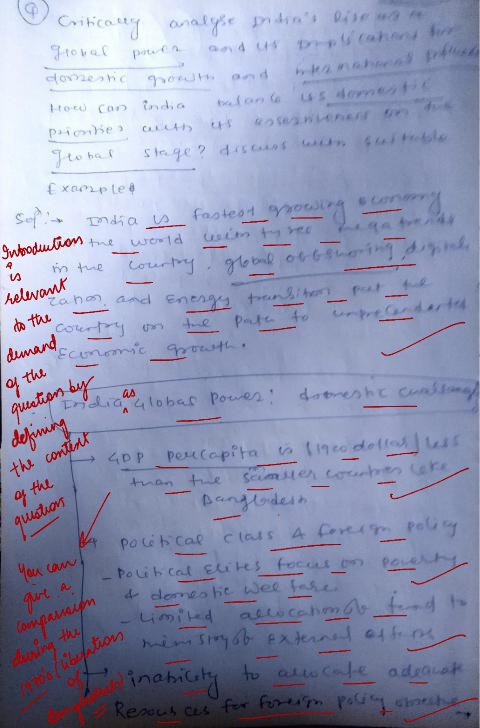 Q Critically analyse India's rise as a
global power and its implications for
domestic growth and international
How can india balance its domestic
priorities with its assertiveness on the
global stage? discuss with suitable
Examples
Solⁿ:→ India is fastest growing economy
in the world with three mega trends
in the country. global offshoring, digitali
zation and Energy transition put the
country on the path to unprecedented
Economic growth.
Introduction
is
relevant
to the
demand
of the
question by
defining
the content
of the
question
India as Global Power: domestic challenges
→ GDP percapita is $1900 dollar/less
than the smaller countries like
Bangladesh
Political class & foreign policy
- Political Elites focus on poverty
& domestic welfare
- Limited allocation of fund to
ministry of External affairs
You can
give a
comparison
during the
1970's (liberation
of
Bangladesh)
→ inability to allocate adequate
Resources for foreign policy objective